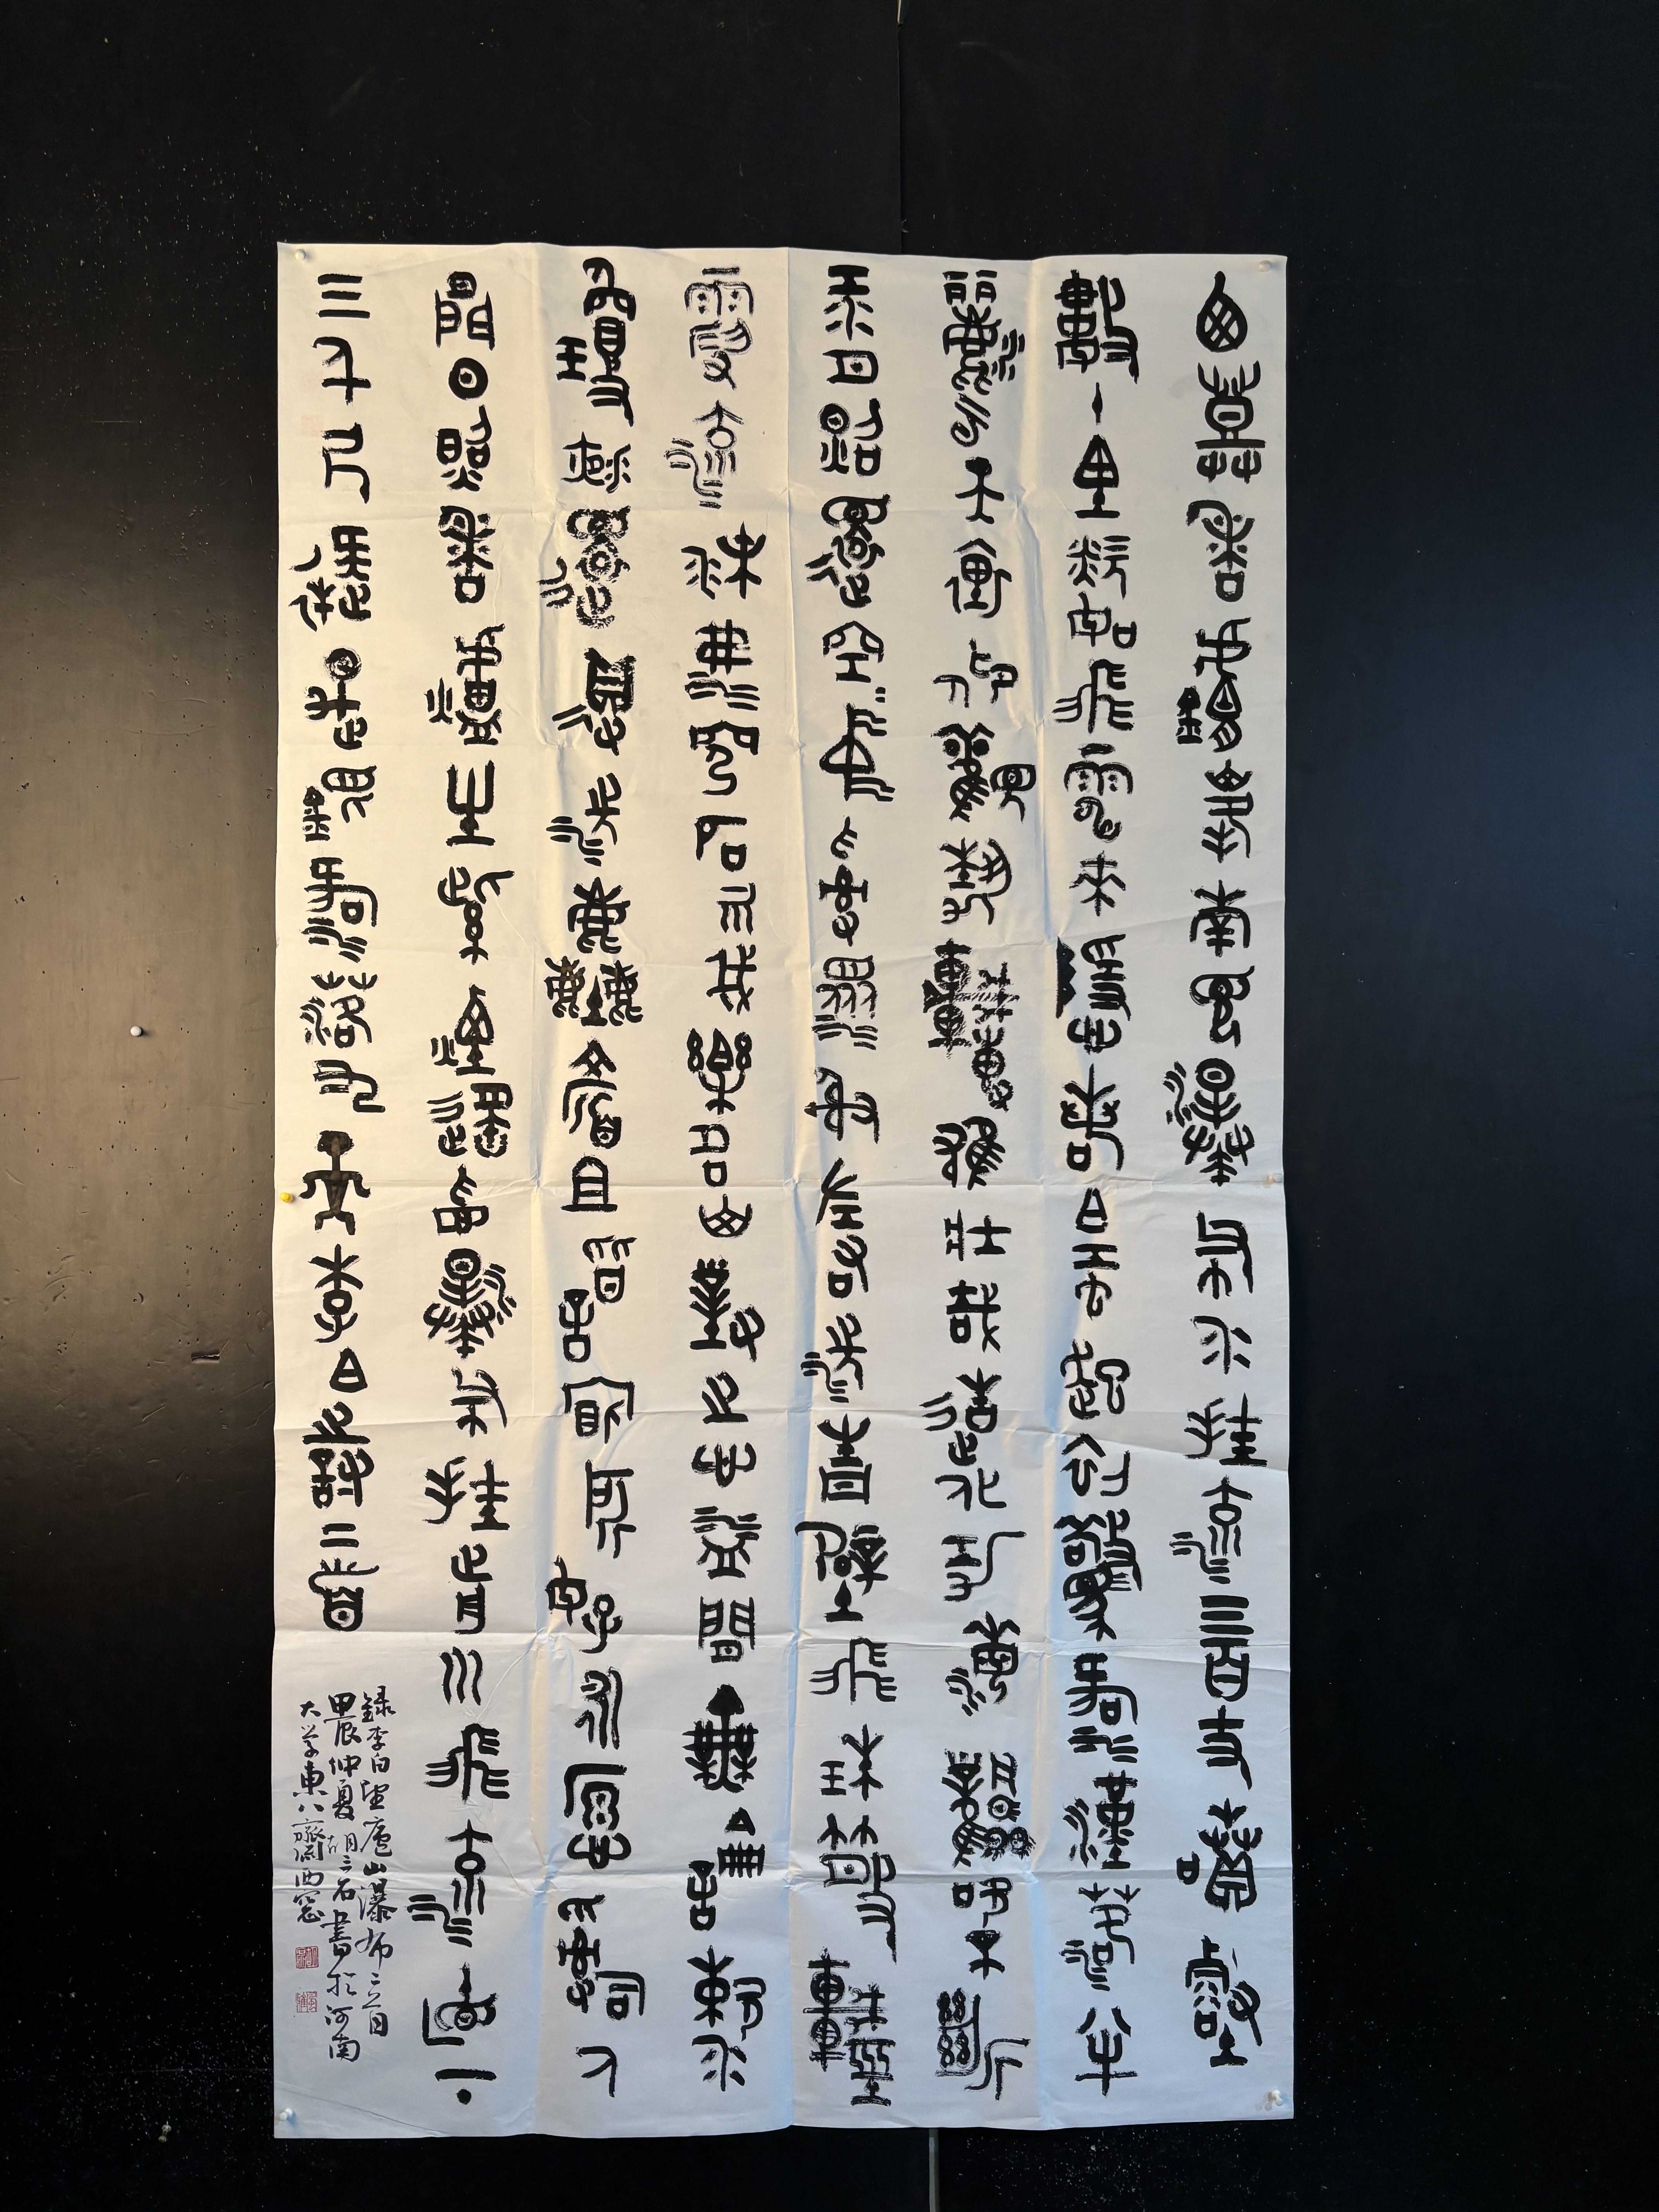 西登香爐峰南見瀑布水挂流三百丈噴壑
數十里欻如飛電來隱若白虹起初驚河漢落半
灑雲天裏仰觀勢轉雄壯哉造化功海風吹不斷
江月照還空〻中亂潨射左右洗青壁飛珠散輕
霞流沫沸穹石而我樂名山對之心益閒無論漱
瓊液還得洗塵顏且諧宿所好永願辭人
間日照香爐生紫煙遙看瀑布挂前川飛流直下
三千尺疑是銀河落九天李白詩二首
錄李白望廬山瀑布二首
甲辰仲夏胡二石書於河南
大學東八齋西窗